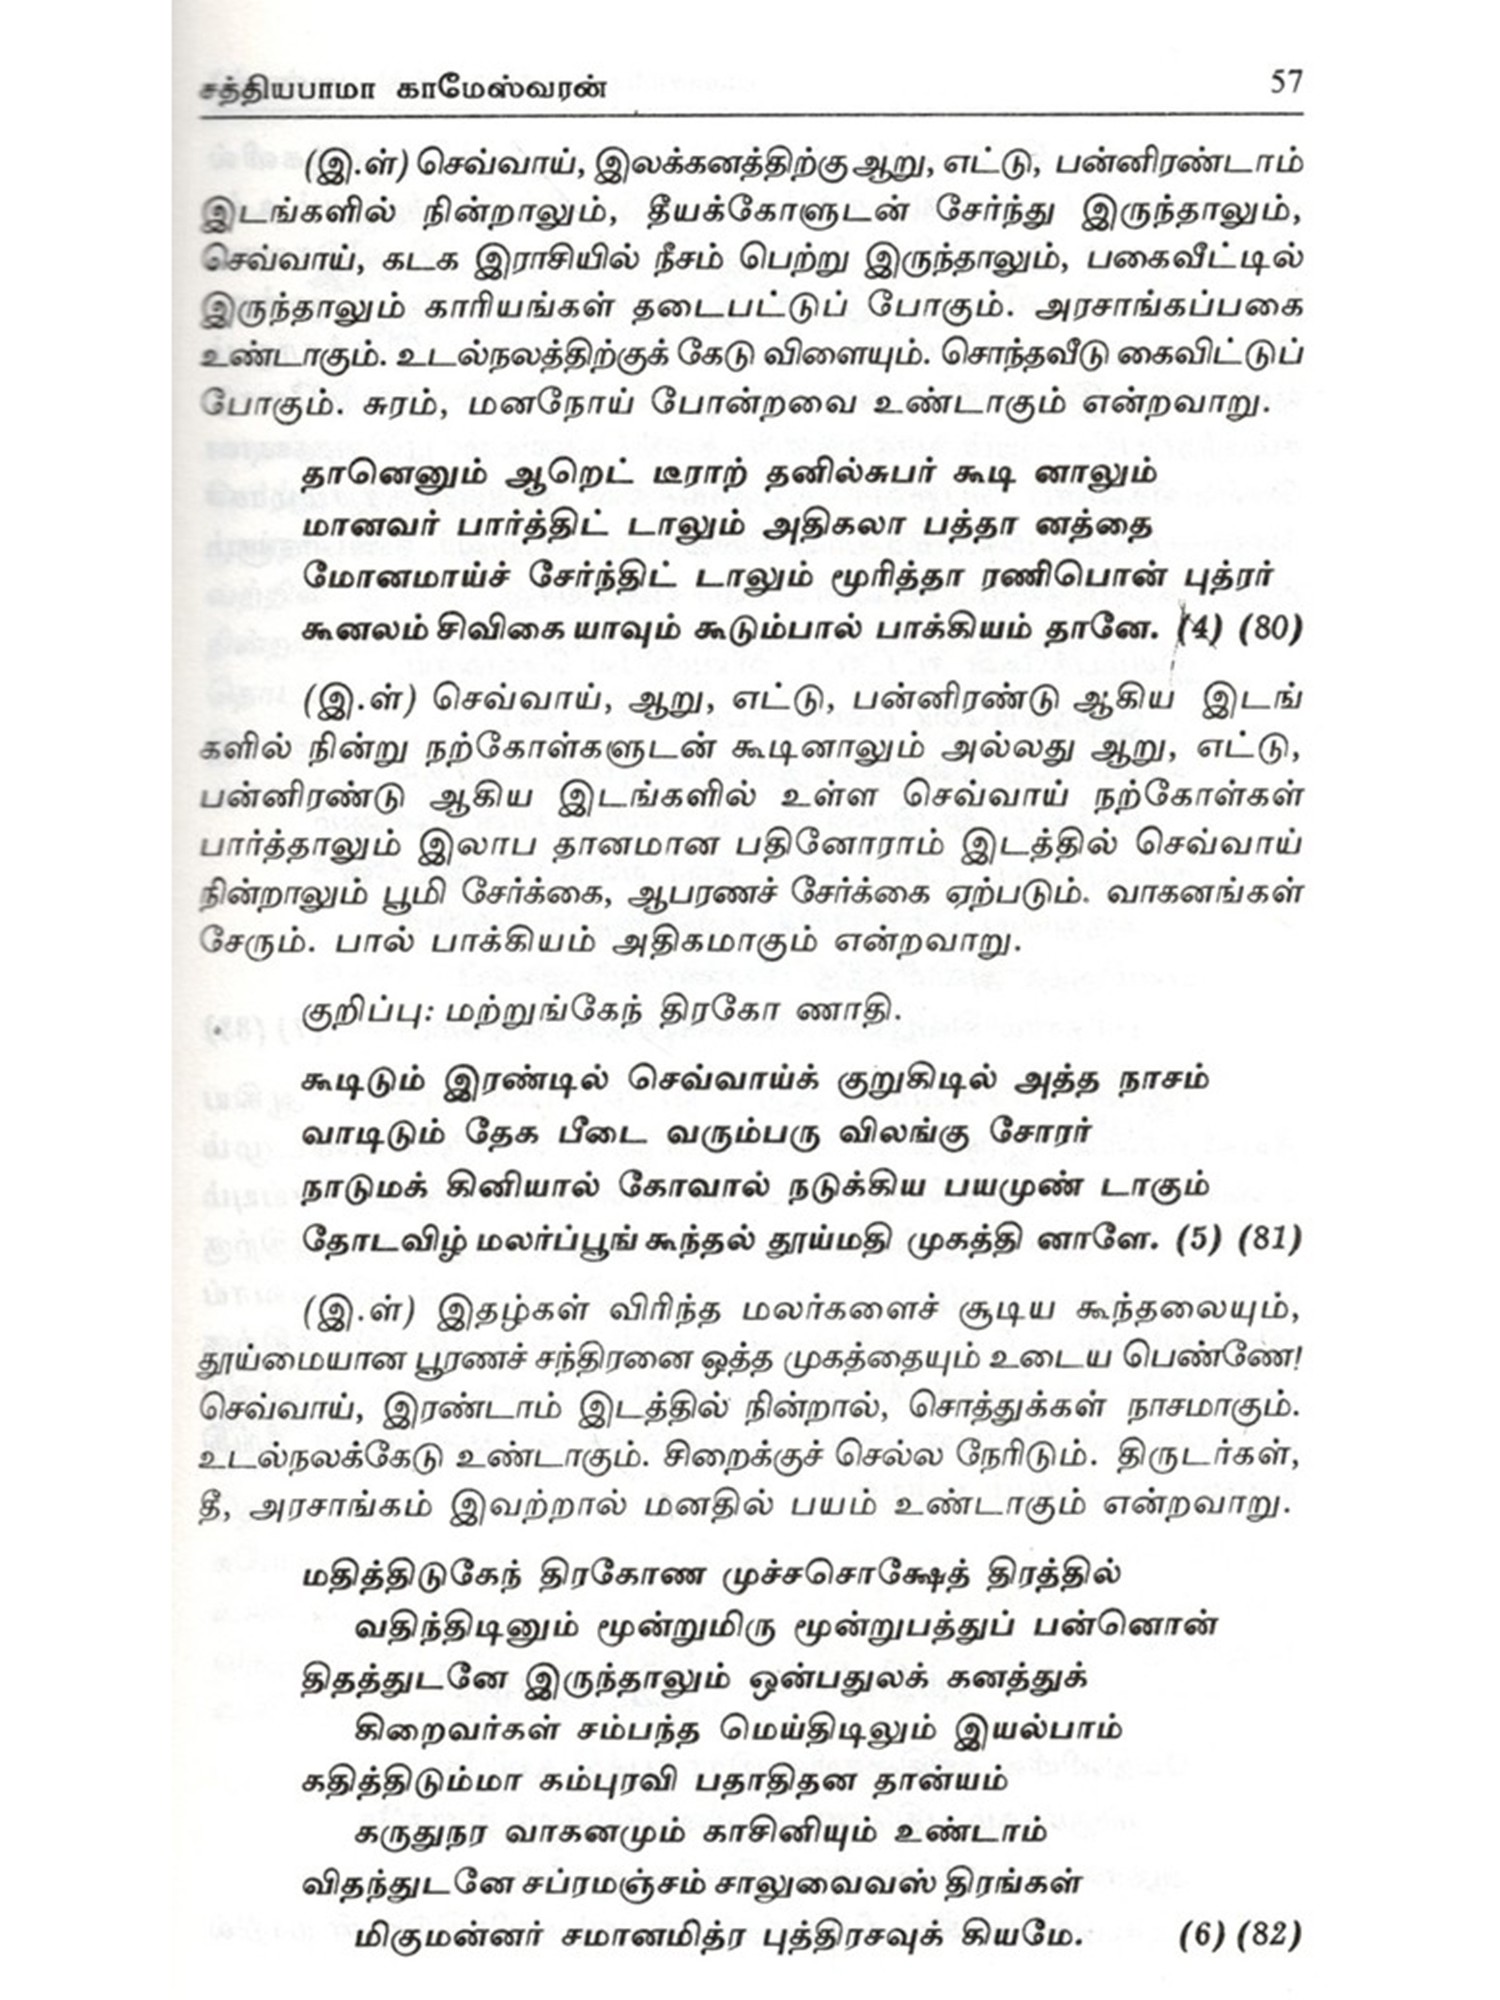 சத்தியபாமா காமேஸ்வரன் 57
(இ.ள்) செவ்வாய், இலக்கனத்திற்கு ஆறு, எட்டு, பன்னிரண்டாம்
இடங்களில் நின்றாலும், தீயக்கோளுடன் சேர்ந்து இருந்தாலும்,
செவ்வாய், கடக இராசியில் நீசம் பெற்று இருந்தாலும், பகைவீட்டில்
இருந்தாலும் காரியங்கள் தடைபட்டுப் போகும். அரசாங்கப்பகை
உண்டாகும். உடல்நலத்திற்குக் கேடு விளையும். சொந்தவீடு கைவிட்டுப்
போகும். சுரம், மனநோய் போன்றவை உண்டாகும் என்றவாறு.
தானெனும் ஆறெட் டீராற் தனில்சுபர் கூடி னாலும்
மானவர் பார்த்திட் டாலும் அதிகலா பத்தா னத்தை
மோனமாய்ச் சேர்ந்திட் டாலும் மூரித்தா ரணிபொன் புத்ரர்
கூனலம் சிவிகை யாவும் கூடும்பால் பாக்கியம் தானே. (4) (80)
(இ.ள்) செவ்வாய், ஆறு, எட்டு, பன்னிரண்டு ஆகிய இடங்
களில் நின்று நற்கோள்களுடன் கூடினாலும் அல்லது ஆறு, எட்டு,
பன்னிரண்டு ஆகிய இடங்களில் உள்ள செவ்வாய் நற்கோள்கள்
பார்த்தாலும் இலாப தானமான பதினோராம் இடத்தில் செவ்வாய்
நின்றாலும் பூமி சேர்க்கை, ஆபரணச் சேர்க்கை ஏற்படும். வாகனங்கள்
சேரும். பால் பாக்கியம் அதிகமாகும் என்றவாறு.
குறிப்பு: மற்றுங்கேந் திரகோ ணாதி.
கூடிடும் இரண்டில் செவ்வாய்க் குறுகிடில் அத்த நாசம்
வாடிடும் தேக பீடை வரும்பரு விலங்கு சோரர்
நாடுமக் கினியால் கோவால் நடுக்கிய பயமுண் டாகும்
தோடவிழ் மலர்ப்பூங் கூந்தல் தூய்மதி முகத்தி னாளே. (5) (81)
(இ.ள்) இதழ்கள் விரிந்த மலர்களைச் சூடிய கூந்தலையும்,
தூய்மையான பூரணச் சந்திரனை ஒத்த முகத்தையும் உடைய பெண்ணே!
செவ்வாய், இரண்டாம் இடத்தில் நின்றால், சொத்துக்கள் நாசமாகும்.
உடல்நலக்கேடு உண்டாகும். சிறைக்குச் செல்ல நேரிடும். திருடர்கள்,
தீ, அரசாங்கம் இவற்றால் மனதில் பயம் உண்டாகும் என்றவாறு.
மதித்திடுகேந் திரகோண முச்சசொக்ஷேத் திரத்தில்
வதிந்திடினும் மூன்றுமிரு மூன்றுபத்துப் பன்னொன்
திதத்துடனே இருந்தாலும் ஒன்பதுலக் கனத்துக்
கிறைவர்கள் சம்பந்த மெய்திடிலும் இயல்பாம்
கதித்திடும்மா கம்புரவி பதாதிதன தான்யம்
கருதுநர வாகனமும் காசினியும் உண்டாம்
விதந்துடனே சப்ரமஞ்சம் சாலுவைவஸ் திரங்கள்
மிகுமன்னர் சமானமித்ர புத்திரசவுக் கியமே. (6) (82)